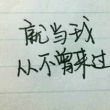 就当我
从不曾来过